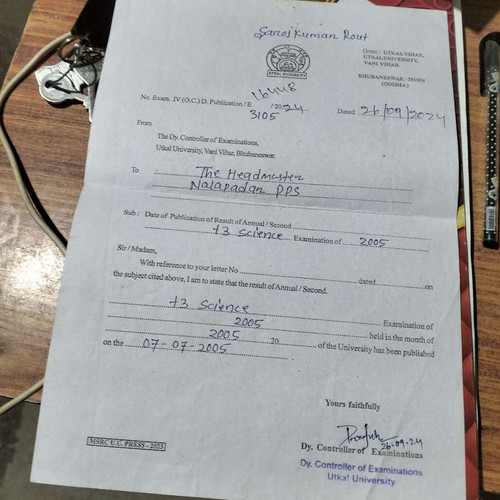 Saroj Kumar Rout
UTKAL UNIVERSITY
Gram : UTKAL-VIHAR,
UTKAL UNIVERSITY,
VANI VIHAR
BHUBANESWAR - 751004
(ODISHA)
No. Exam. IV (O.C.) D. Publication / E 16448 / 2024
3105
Dated 26/09/2024
From
The Dy. Controller of Examinations,
Utkal University, Vani Vihar, Bhubaneswar.
To The Headmaster
Nalapadar PPS
Sub : Date of Publication of Result of Annual / Second
+3 Science Examination of 2005
Sir / Madam,
With reference to your letter No dated on
the subject cited above, I am to state that the result of Annual / Second.
+3 Science Examination of
2005 held in the month of
2005 20 of the University has been published
on the 07-07-2005
Yours faithfully
26.09.24
Dy. Controller of Examinations
Dy. Controller of Examinations
Utkal University
MSRC U.U. PRESS - 2023